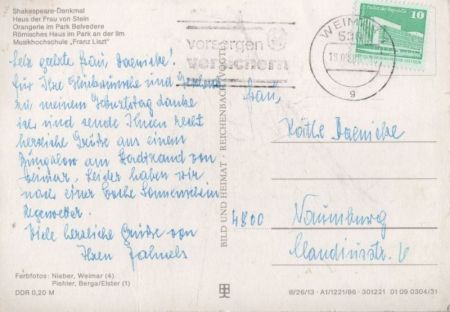 Shakespeare-Denkmal
Haus der Frau von Stein
Orangerie im Park Belvedere
Römisches Haus im Park an der Ilm
Musikhochschule „Franz Liszt“
Sehr geehrte Frau Daenicke!
für Ihre Glückwünsche und
zu meinem Geburtstag danke
ich und sende Ihnen recht
herzliche Grüße aus einem
Bungalow am Stadtrand von
Weimar. Leider haben wir
nach einer Woche Sonnenschein
Regenwetter.
Viele herzliche Grüße von
Ihren
Farbfotos: Nieber, Weimar (4)
Piehler, Berga/Elster (1)
DDR 0,20 M
BILD UND HEIMAT · REICHENBACH
vorsorgen
versichern
WEIMAR
9
10
Frau
Käthe Daenicke
4800 Naumburg
Claudiusstr. 6
8/26/13 · A1/1221/86 · 301221 01 09 0304/31